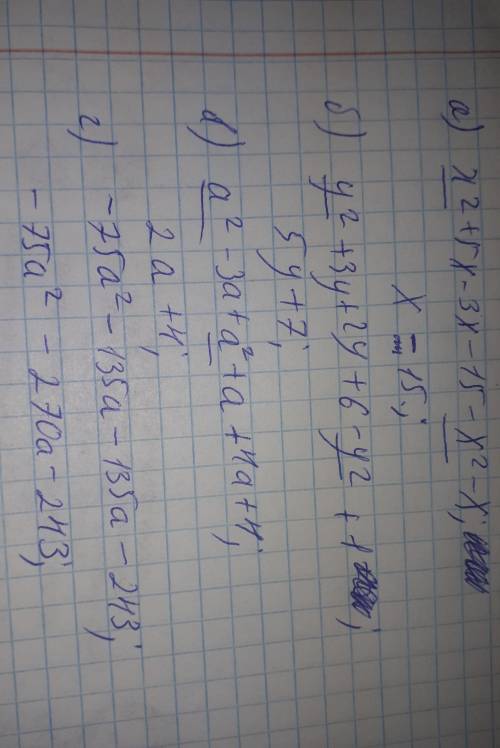 а) x² + 5x - 3x - 15 - x² - x;
x - 15;
б) y² + 3y + 2y + 6 - y² + 1;
5y + 7;
в) a² - 3a + a² + a + 4a + 4;
2a + 4;
г) -75a² - 135a - 135a - 243;
-75a² - 270a - 243;